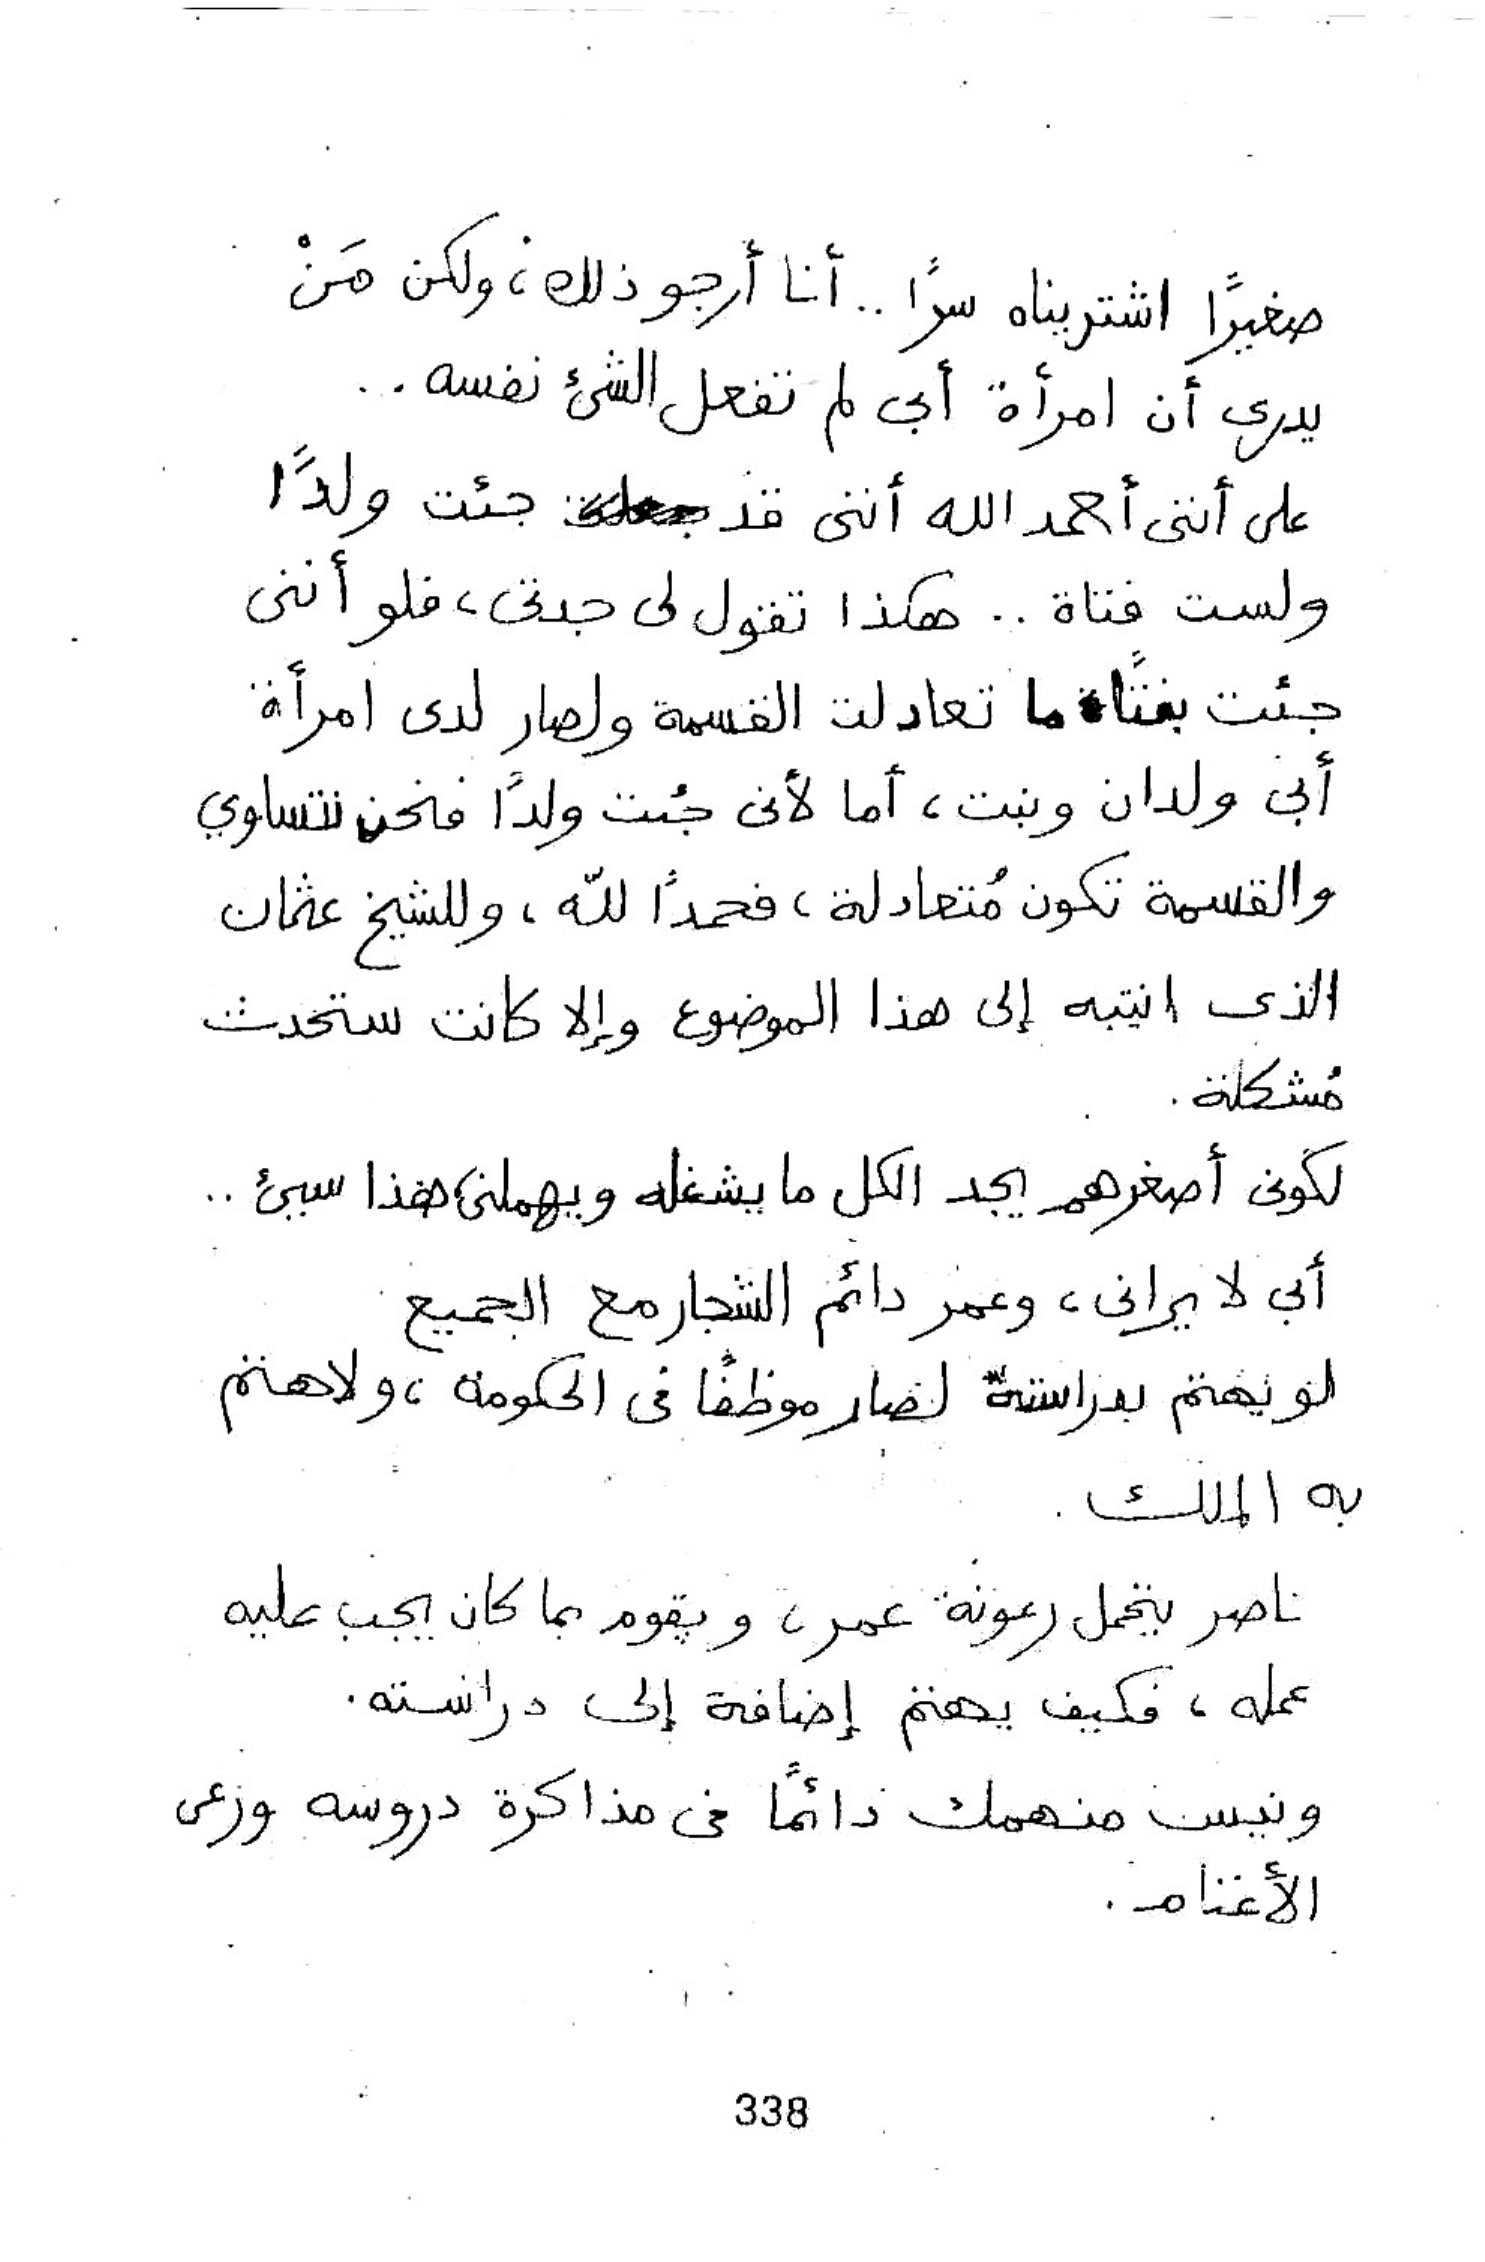 صغيرًا اشتريناه سرًا .. أنا أرجو ذلك، ولكن مَنْ
يدرى أن امرأة أبى لم تفعل الشئ نفسه ..
على أننى أحمد الله أننى قد جئت ولدًا
ولست فتاة .. هكذا تقول لى جدتى، فلو أننى
جئت بفتاة ما تعادلت القسمة ولصار لدى امرأة
أبي ولدان وبنت، أما لأنى جُئت ولدًا فنحن نتساوي
والقسمة تكون مُتعادلة، فحمدًا للّه، وللشيخ عثمان
الذى انتبه إلى هذا الموضوع وإلا كانت ستحدث
مُشكلة .
لكونى أصغرهم يجد الكل ما يشغله ويهملنى، هذا سيئ ..
أبي لا يرانى، وعمر دائم الشجار مع الجميع
لو يهتم بدراسته لصار موظفًا فى الحكومة، ولاهتم
به الملك .
ناصر يتحمل رعونة عمر، ويقوم بما كان يجب عليه
عمله، فكيف يهتم إضافة إلى دراسته.
ونيس منهمك دائمًا فى مذاكرة دروسه ورعى
الأغنام .
338